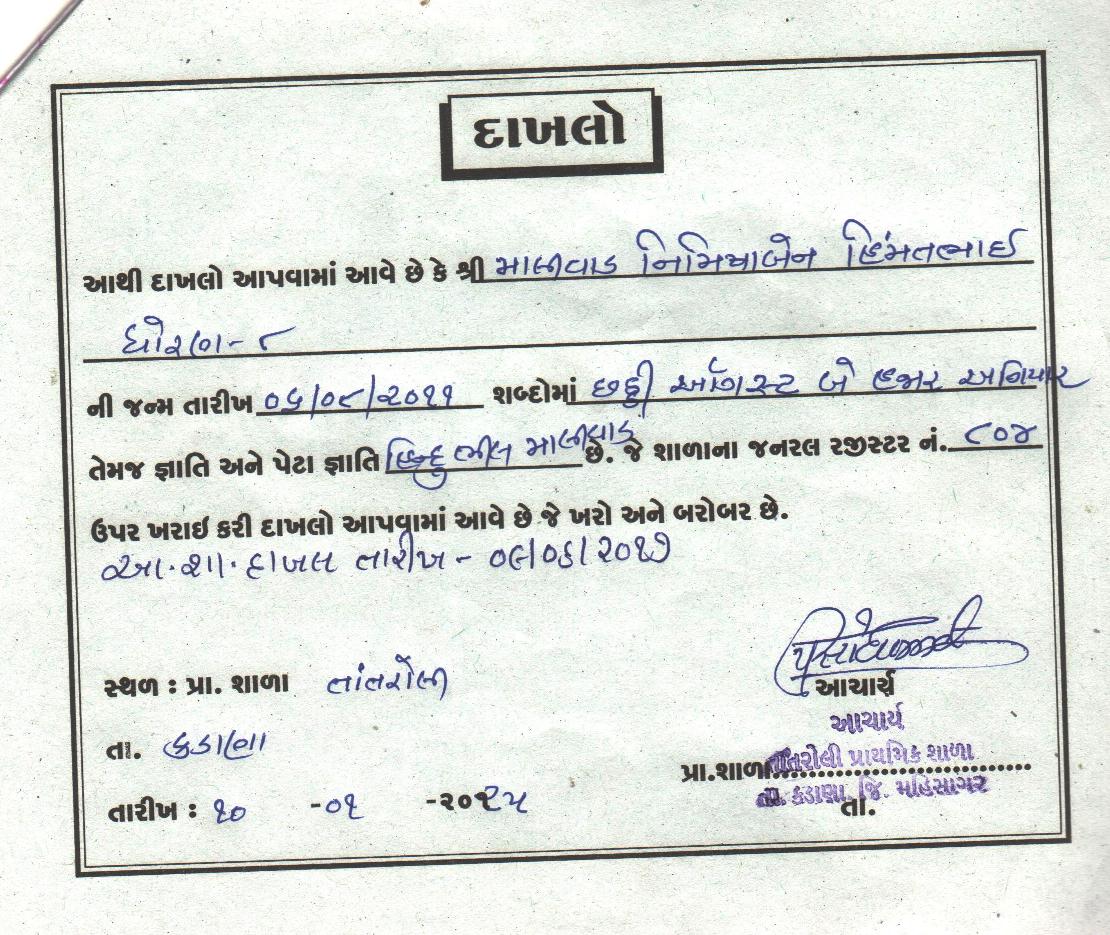 દાખલો
આથી દાખલો આપવામાં આવે છે કે શ્રી માલીવાડ નિમિષાબેન હિંમતભાઈ
ધોરણ - ૮
ની જન્મ તારીખ ૦૬/૦૮/૨૦૧૧ શબ્દોમાં છઠ્ઠી ઓગસ્ટ બે હજાર અગિયાર
તેમજ જ્ઞાતિ અને પેટા જ્ઞાતિ હિન્દુ ભીલ માલીવાડ છે. જે શાળાના જનરલ રજીસ્ટર નં. ૮૦૪
ઉપર ખરાઇ કરી દાખલો આપવામાં આવે છે જે ખરો અને બરોબર છે.
આ.શા. દાખલ તારીખ - ૦૯/૦૬/૨૦૧૭
સ્થળ : પ્રા. શાળા તાંતરોલી
આચાર્ય
આચાર્ય
તા. કડાણા
પ્રા.શાળા તાંતરોલી પ્રાથમિક શાળા
તા. કડાણા, જિ. મહિસાગર
તા.
તારીખ : ૧૦ -૦૧ -૨૦૨૫